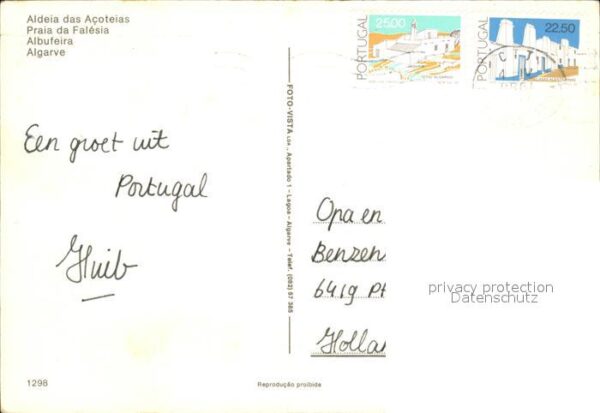 Aldeia das Açoteias
Praia da Falésia
Albufeira
Algarve
25.00
PORTUGAL
22.50
PORTUGAL
Een groet uit
Portugal
Huib
FOTO-VISTA LDA., Apartado 1 - Lagoa - Algarve - Telef. (082) 57 365
Opa en
Benzen
6419 P
Holla
privacy protection
Datenschutz
1298
Reprodução proibida